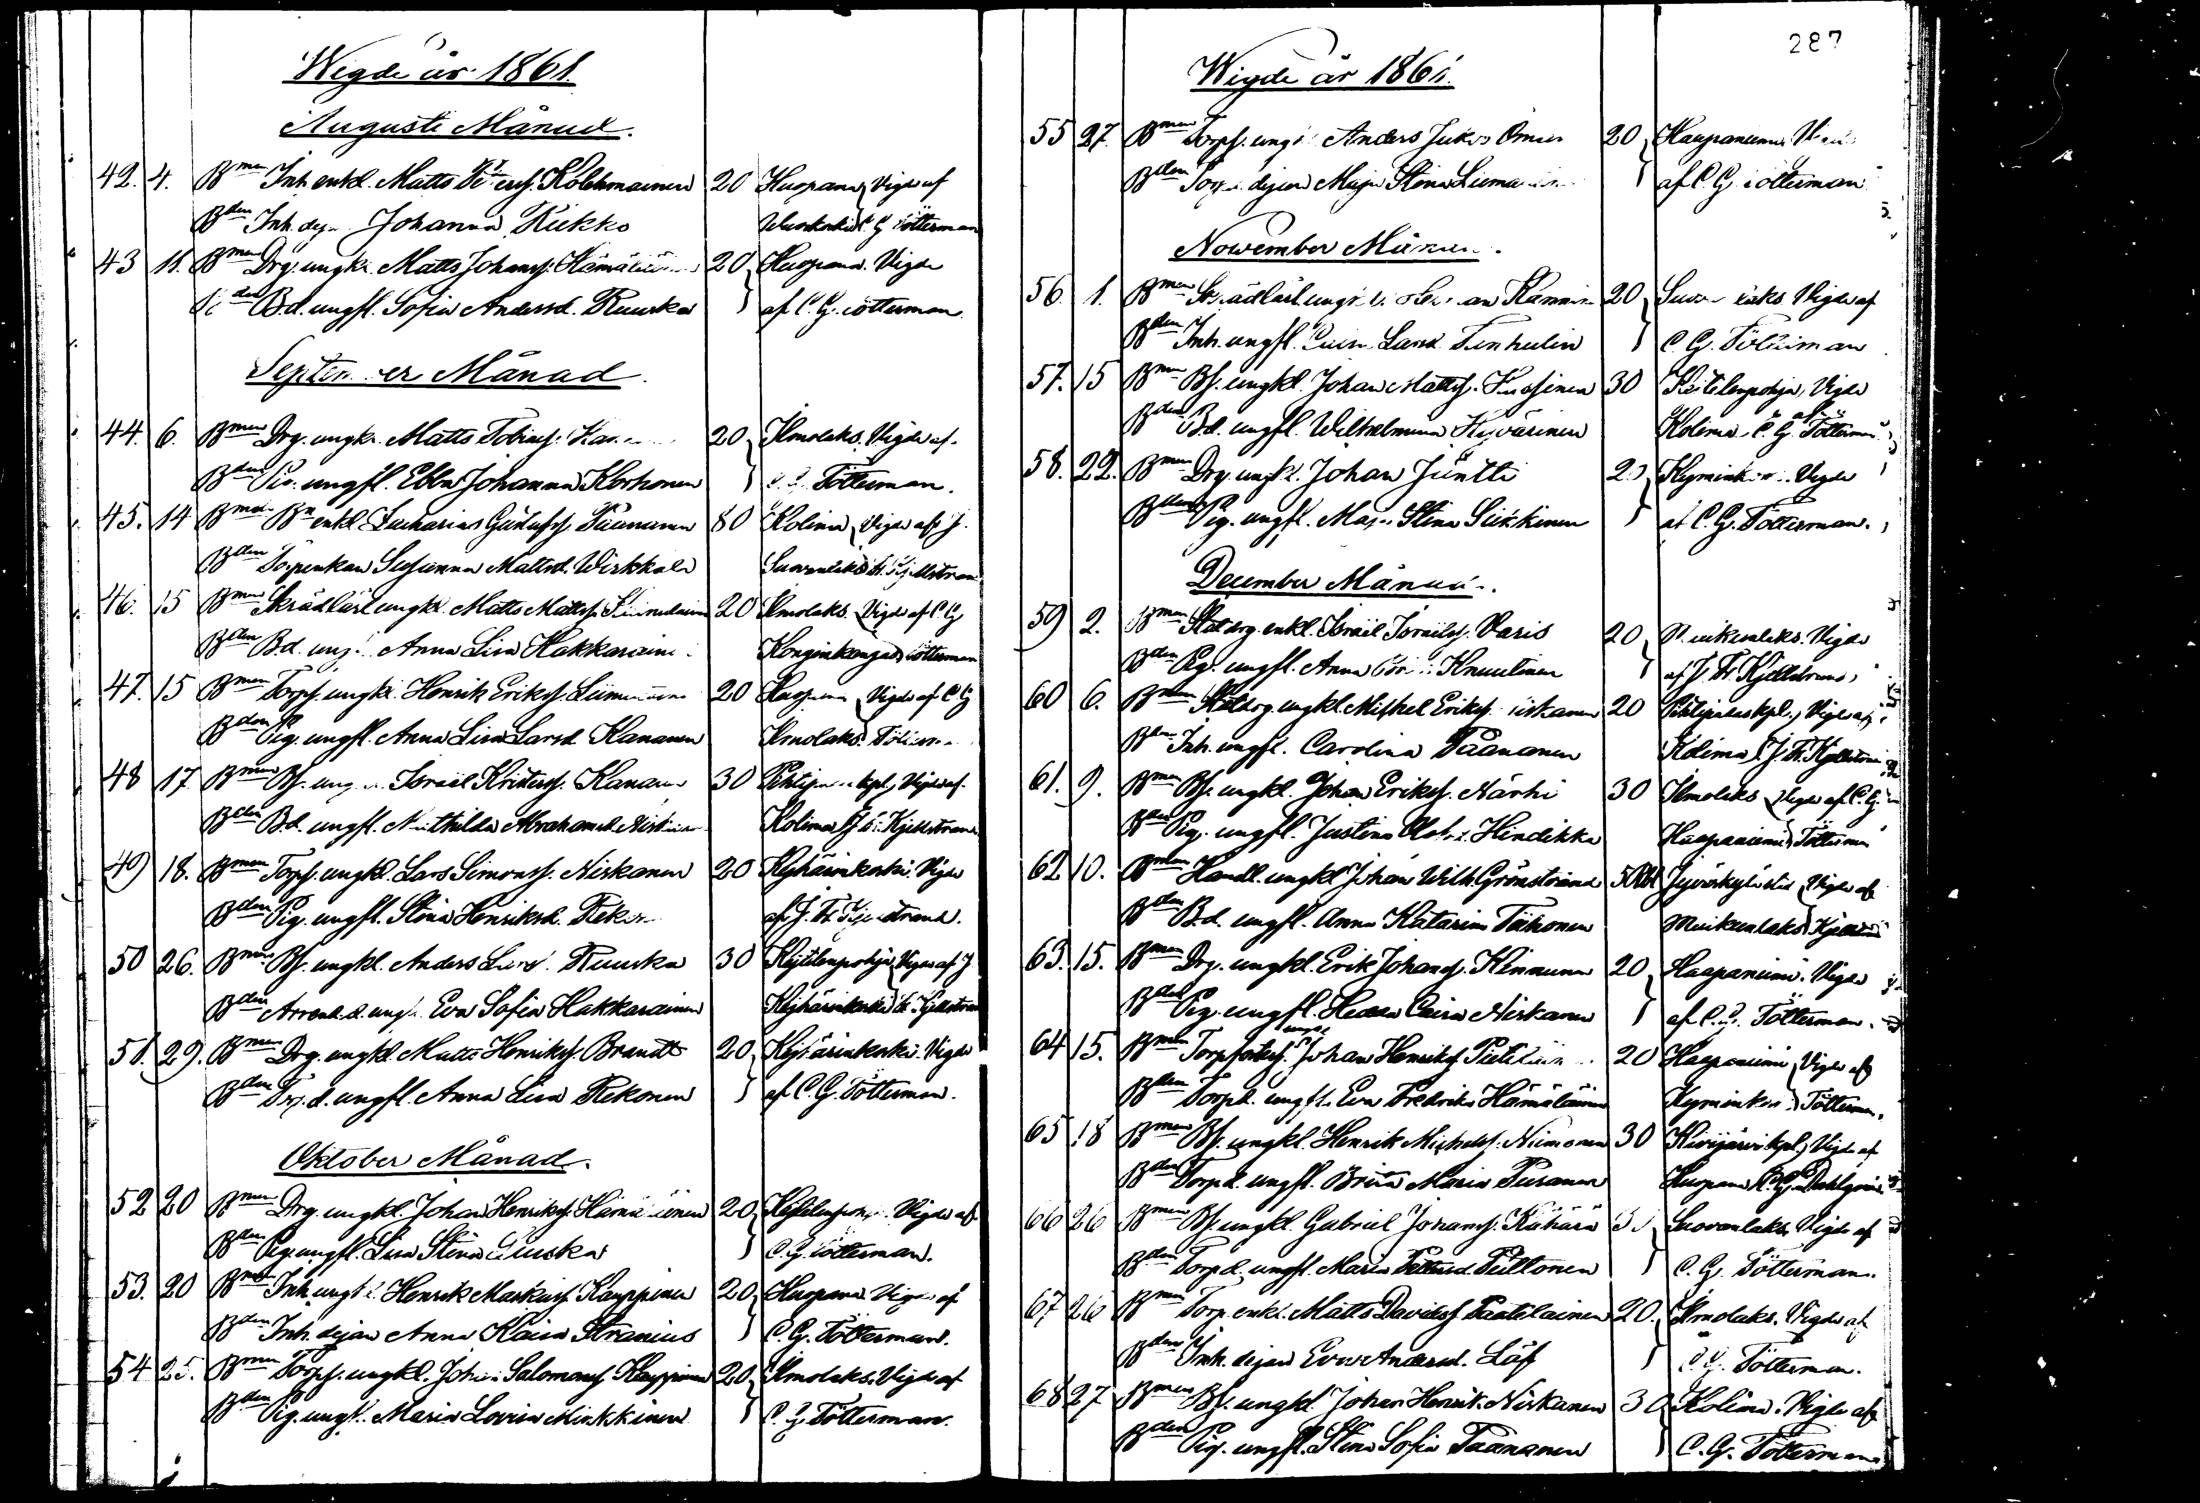 Wigde år 1861.
Augusti Månad.
42. 4. Bmen Inh. enkl. Matts Peterss. Kolehmainen 20 Huopana Vigde af
Bden Inh. dejan Johanna Kukko C. G. Tötterman
43 11. Bmen Drg. ungkl. Matts Johanss. Hämäläinen 20 Huopana. Vigde
Bden Bd. ungfl. Sofia Andersd. Ruuska af C. G. Tötterman
September Månad.
44. 6. Bmen Drg. ungkl. Matts Tobiass. 20 Ilmolaks. Vigde af
Bden Pig. ungfl. Ebba Johanna Korhonen C. G. Tötterman.
45. 14 Bmen Bn enkl. Zacharias Gustafss. Paananen 80 Kolima Vigde af J.
Bden Torpenkan Susanna Mattsd. Wirkkala Suovanlaks Fr. Kjellstrand
46. 15 Bmen Skrädlärl. ungkl. Matts Mattss. 20 Ilmolaks. Vigde af C. G.
Bden Bd. ungfl. Anna Lisa Hakkarainen Konginkangas Tötterman
47. 15 Bmen Torps. ungkl. Henrik Erikss. Liimatainen 20 Huopana Vigde af C. G.
Bden Pig. ungfl. Anna Lisa Larsd. Kananen Ilmolaks. Tötterman
48 17 Bmen Bs. ungkl. Israël Kristerss. Kananen 30 Pihtipudas kpl. Vigde af
Bden Bd. ungfl. Mathilda Abrahamsd. Niskanen Kolima J. Fr. Kjellstrand
49 18. Bmen Torps. ungkl. Lars Simonss. Niskanen 20 Keihärinkoski. Vigde
Bden Pig. ungfl. Stina Henriksd. Rekonen af J. Fr. Kjellstrand.
50 26. Bmen Bs. ungkl. Anders Larss. Ruuska 30 Keitelenpohja Vigde af J.
Bden Arrend. d. ungfl. Eva Sofia Hakkarainen Keihärinkoski Fr. Kjellstrand
51. 29. Bmen Drg. ungkl. Matts Henrikss. Brandt 20 Keihärinkoski. Vigde
Bden Trp. d. ungfl. Anna Lisa Rekonen af C. G. Tötterman.
Oktober Månad.
52 20 Bmen Drg. ungkl. Johan Henrikss. Hämäläinen 20 Keitelenpohja. Vigde af
Bden Pig. ungfl. Lisa Stina Ruuska C. G. Tötterman.
53. 20 Bmen Inh. ungkl. Henrik Markuss. Kauppinen 20 Huopana Vigde af
Bden Inh. dejan Anna Kaisa Stranius C. G. Tötterman.
54 25. Bmen Torps. ungkl. Johan Salomonss. Kauppinen 20 Ilmolaks. Vigde af
Bden Pig. ungfl. Maria Lovisa Minkkinen C. G. Tötterman.
287
Wigde år 1861.
55 27. Bmen Torps. ungkl. Anders 20 Haapaniemi. Vigde
Bden dejan Maja Stina af C. G. Tötterman
November Månad.
56. 1. Bmen Skrädlärl. ungkl. 20 Suovanlaks Vigde af
Bden Inh. ungfl. Larsd. C. G. Tötterman
57. 15 Bmen Bs. ungkl. Johan Mattss. 30 Keitelenpohja, Vigde
Bden Bd. ungfl. Wilhelmina Hyvärinen Kolima af C. G. Tötterman
58. 22. Bmen Drg. ungkl. Johan Jüntti 20 Kyminkoski. Vigde
Bden Pig. ungfl. Maja Stina Siikkinen af C. G. Tötterman.
December Månad.
59 2. Bmen Stat drg. enkl. Israël Israëlss. Varis 20 Vigde
Bden Pig. ungfl. Anna Knuutinen af J. Fr. Kjellstrand
60 6. Bmen Statdrg. ungkl. Mikkel Erikss. 20 Pihtipudas kpl. Vigde af
Bden Inh. ungfl. Carolina Paananen Kolima J. Fr. Kjellstrand
61. 9. Bmen Bs. ungkl. Johan Erikss. Närhi 30 Ilmolaks Vigde af C. G.
Bden Pig. ungfl. Justina Hindikka Haapaniemi Tötterman
62 10. Bmen Handl. ungkl. Johan Wilh. Grönstrand 50 Jyväskylä stad Vigde af
Bden Bd. ungfl. Anna Katarina
63. 15. Bmen Drg. ungkl. Erik Johanss. Kinnunen 20 Haapaniemi. Vigde
Bden Pig. ungfl. Hedda Caisa Niskanen af C. G. Tötterman.
64 15. Bmen ungkl. Johan Henrikss. 20 Haapaniemi Vigde af
Bden Torpd. ungfl. Eva Fredrika Hämäläinen Kyminkoski Tötterman.
65 18 Bmen Bs. ungkl. Henrik Michelss. Niinonen 30 Kivijärvi kpl. Vigde af
Bden Torpd. ungfl. Brita Maria Puranen Huopana C. G. Dahlgren
66 26 Bmen Bs. ungkl. Gabriel Johanss. Kähärä 30 Suovanlaks. Vigde af
Bden Torpd. ungfl. Maria Pettersd. Peltonen C. G. Tötterman.
67 26 Bmen Torp. enkl. Matts Davidss. Paatelainen 20. Ilmolaks. Vigde af
Bden Inh. dejan Eva Andersd. Löf C. G. Tötterman.
68 27 Bmen Bs. ungkl. Johan Henrik. Niskanen 30 Kolima. Vigde af
Bden Pig. ungfl. Stina Sofia Paananen C. G. Tötterman